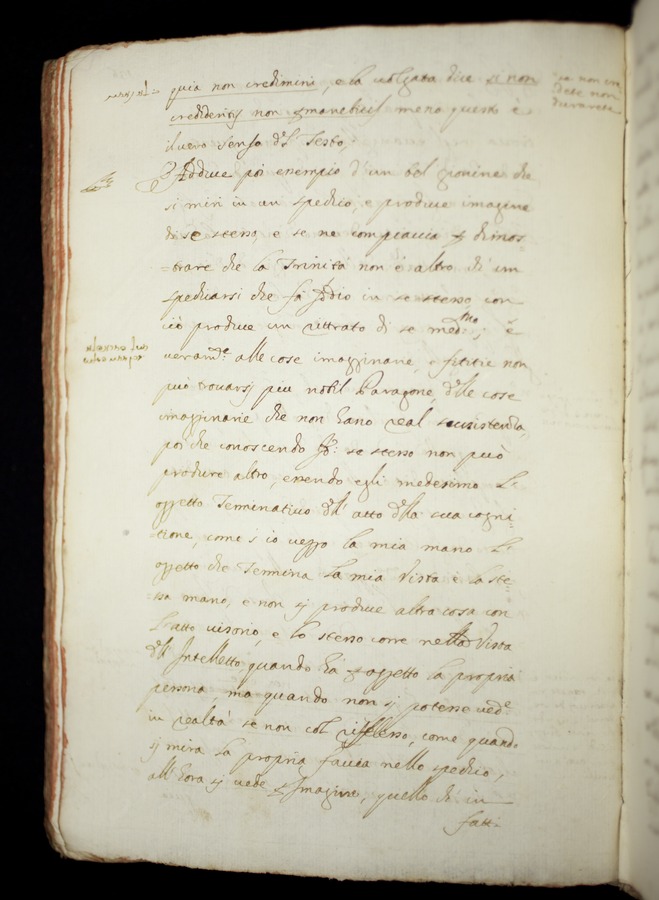 quia non credimini, e la volgata dice si non
credideritis non permanebitis meno questo è
il vero senso del Testo,
Adduce poi esempio d'un bel giovine che
si miri in un specchio, e produce imagine
di se stesso, e se ne compiaccia p dimos=
=trare che la Trinità non è altro ch'un
specchiarsi che fa Iddio in se stesso, con
ciò produce un rittratto di se med.mo; e
veram.te alle cose imagginarie, e fititie non
può trovarsi piu nobil Paragone, delle cose
imagginarie che non hano real sussistenza,
poi che conoscendo se stesso non può
produre altro, essendo egli medesimo L'
oggetto Terminativo dell'atto della sua cogni
tione, come s'io veggo la mia mano L'
oggetto che Termina la mia Vista è la ste=
=ssa mano, e non si produce altra cosa con
L'atto visorio, e lo stesso corre nella Vista
dell'Intelletto, quando ha p oggetto la propria
persona ma quando non si potesse ved.e
in realtà se non col riflesso, come quando
si mira la propria faccia nello specchio,
all'hora si vede p Imagine, quello ch'in
fatti
se non cre
dete non
durarete